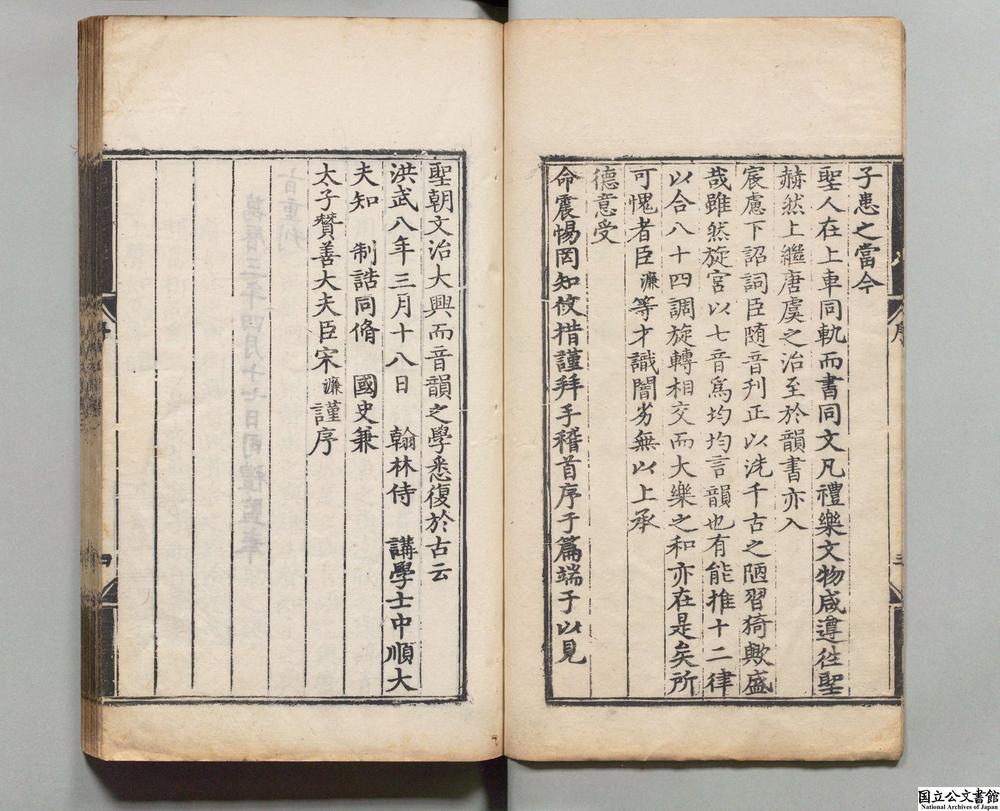 子患之當今
聖人在上車同軌而書同文凡禮樂文物咸遵徃聖
赫然上繼唐虞之治至於韻書亦入
宸慮下詔詞臣随音刋正以洗千古之陋習猗歟盛
哉雖然旋宮以七音爲均均言韻也有能推十二律
以合八十四調旋轉相交而大樂之和亦在是矣所
可愧者臣濂等才識闇劣無以上承
德意受
命震惕罔知攸措謹拜手稽首序于篇端于以見
序
三
聖朝文治大興而音韻之學悉復於古云
洪武八年三月十八日 翰林侍 講學士中順大
夫知 制誥同脩 國史兼
太子賛善大夫臣宋濂謹序
旨重刋
萬曆三年四月十七日司禮監奉
序
四
国立公文書館
National Archives of Japan